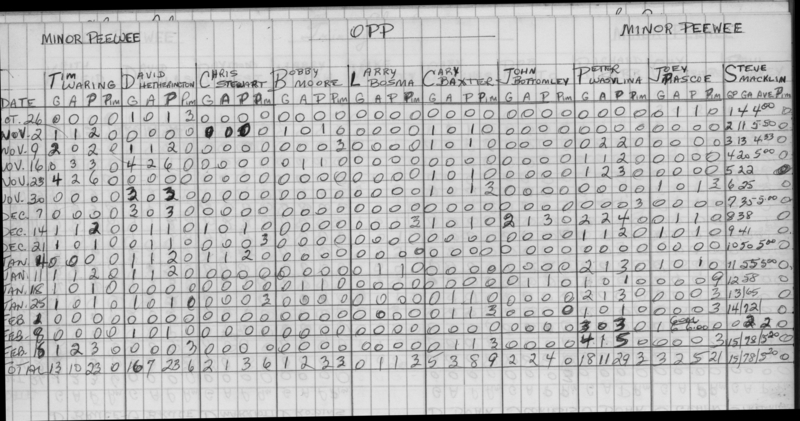 MINOR PEEWEE OPP MINOR PEEWEE
TIM DAVID CHRIS BOBBY LARRY CARY JOHN PETER JOEY STEVE
WARING HETHERINGTON STEWART MOORE BOSMA BAXTER BOTTOMLEY WASYLINA PASCOE MACKLIN
DATE G A P Pim G A P Pim G A P Pim G A P Pim G A P Pim G A P Pim G A P Pim G A P Pim G A P Pim GP GA AVE Pim
OCT. 26 0 0 0 0 1 0 1 3 0 0 0 0 0 0 0 0 0 0 0 0 0 0 0 0 0 0 0 0 0 0 0 0 0 1 1 0 1 4 4.00 0
NOV. 2 1 1 2 0 0 0 0 0 0 0 0 0 1 0 1 0 0 0 0 0 1 0 1 0 0 0 0 0 0 0 0 0 0 0 0 0 2 11 5.50 0
NOV. 9 2 0 2 0 1 1 2 0 0 0 0 0 0 0 0 3 0 0 0 0 1 0 1 0 0 0 0 0 0 2 2 0 0 0 0 0 3 13 4.33 0
NOV. 16 0 3 3 0 4 2 6 0 0 0 0 0 0 1 1 0 0 0 0 0 0 0 0 0 0 0 0 0 1 1 2 0 0 0 0 0 4 20 5.00 0
NOV. 23 4 2 6 0 0 0 0 0 0 0 0 0 0 0 0 0 0 0 0 0 1 0 1 0 0 0 0 0 1 2 3 0 0 0 0 0 5 22 0
NOV. 30 0 0 0 0 3 0 3 0 0 0 0 0 0 0 0 0 0 0 0 0 1 0 1 3 0 0 0 0 0 0 0 0 1 0 1 3 6 25 0
DEC. 7 0 0 0 0 3 0 3 0 0 0 0 0 0 0 0 0 0 0 0 0 0 0 0 0 0 0 0 0 0 0 0 3 0 0 0 0 7 35 5.00 0
DEC. 14 1 1 2 0 0 1 1 0 1 0 1 0 0 0 0 0 0 0 0 3 1 0 1 0 2 1 3 0 2 2 4 0 0 1 1 0 8 38 0
DEC. 21 1 0 1 0 0 1 1 0 0 0 0 3 0 0 0 0 0 0 0 0 0 0 0 0 0 0 0 0 1 1 2 0 1 0 1 0 9 41 0
JAN. 4 0 0 0 0 1 1 2 0 1 1 2 0 0 0 0 0 0 0 0 0 0 0 0 0 0 0 0 0 0 0 0 0 0 0 0 0 10 50 5.00 0
JAN. 11 1 1 2 0 1 1 2 0 0 0 0 0 0 0 0 0 0 1 1 0 0 0 0 0 0 0 0 0 2 1 3 0 1 0 1 0 11 55 5.00 0
JAN. 18 1 0 1 0 0 0 0 0 0 0 0 0 0 1 1 0 0 0 0 0 0 0 0 0 0 1 1 0 1 0 1 0 0 0 0 9 12 58 0
JAN. 25 1 0 1 0 1 0 1 0 0 0 0 3 0 0 0 0 0 0 0 0 0 0 0 0 0 0 0 0 2 1 3 0 0 0 0 3 13 65 0
FEB. 1 0 0 0 0 0 0 0 0 0 0 0 0 0 0 0 0 0 0 0 0 0 1 1 3 0 0 0 0 0 0 0 0 0 0 0 3 14 72 0
FEB. 8 0 0 0 0 1 0 1 0 0 0 0 0 0 0 0 0 0 0 0 0 0 0 0 0 0 0 0 0 3 0 3 0 1 0 2 2 0
FEB. 15 1 2 3 0 0 0 0 3 0 0 0 0 0 0 0 0 0 0 0 0 0 1 1 3 0 0 0 0 4 1 5 0 0 0 0 3 15 78 5.20 0
TOTAL 13 10 23 0 16 7 23 6 2 1 3 6 1 2 3 3 0 1 1 3 5 3 8 9 2 2 4 0 18 11 29 3 3 2 5 21 15 78 5.20 0